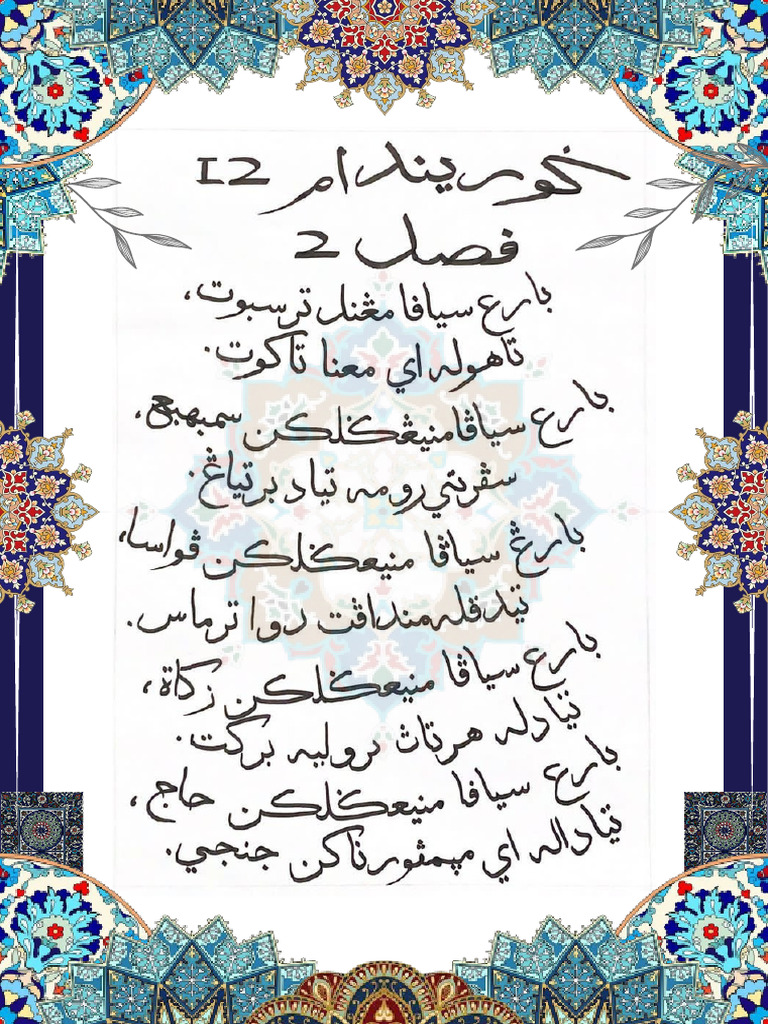 ڬوريندام 12
فصل 2
بارع سيافا مڠنل ترسبوت،
تاهوله اي معنا تاكوت.
بارع سياڤا منيڠݢلكن سمبهيع،
سڤرتي رومه تياد برتياڠ.
بارڠ سياڤا منيعݢلكن ڤواسا،
تيدقله منداڤت دوا ترماس.
بارع سياڤا منيعݢلكن زكاة،
تيادله هرتاڽ بروليه بركت.
بارع سيافا منيعݢلكن حاج،
تياداله اي مپمڤورناكن جنجي.